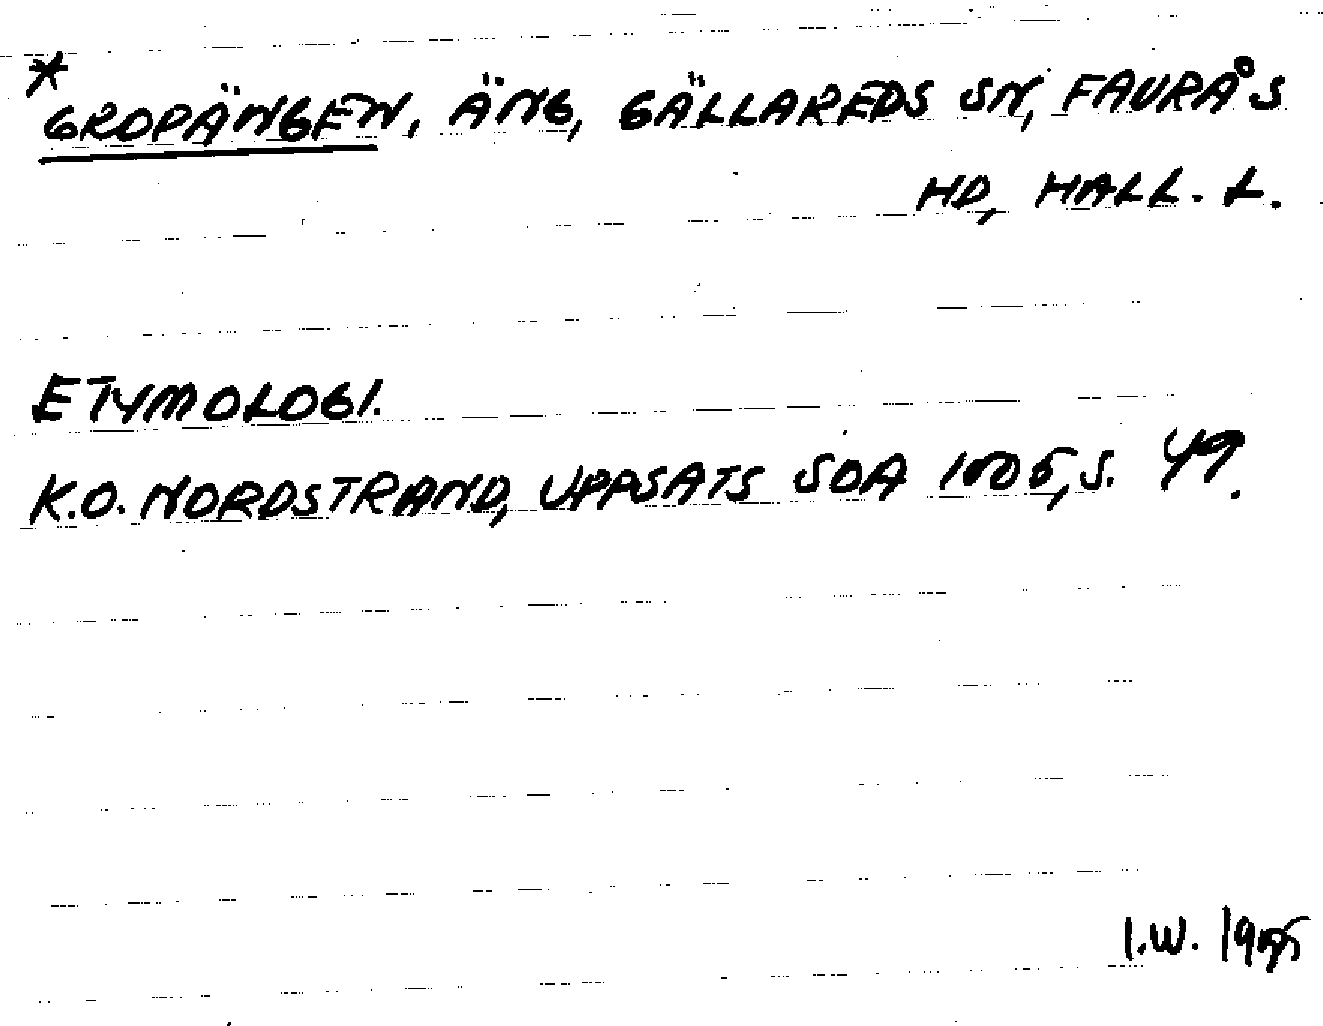 *
GROPÄNGEN, ÄNG, GÄLLAREDS SN, FAURÅS
HD, HALL. L.
ETYMOLOGI.
K.O. NORDSTRAND, UPPSATS SOA 1005, S. 49.
I.W.